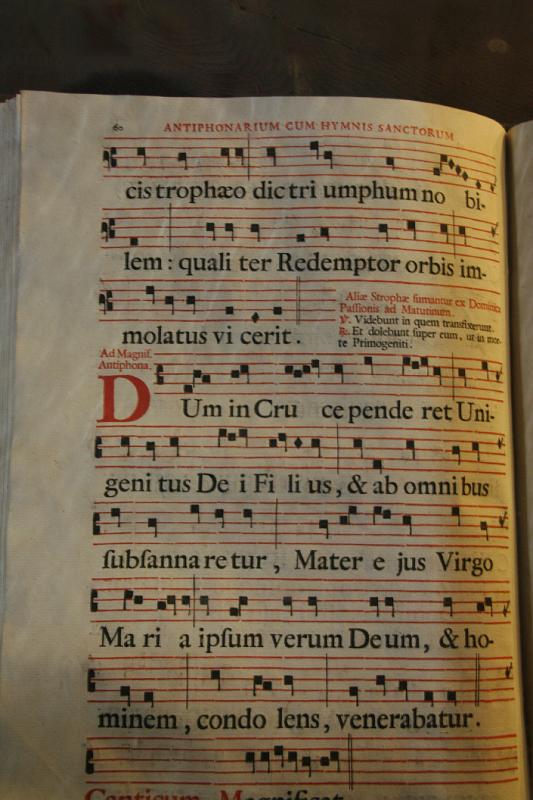 60 ANTIPHONARIUM CUM HYMNIS SANCTORUM
cis trophæo dic tri umphum no bi-
lem : quali ter Redemptor orbis im-
Aliæ Strophæ sumantur ex Dominica
Passionis ad Matutinum.
℣. Videbunt in quem transfixerunt.
℟. Et dolebunt super eum, ut in mor-
te Primogeniti.
molatus vi cerit.
Ad Magnif.
Antiphona.
DUm in Cru ce pende ret Uni-
geni tus De i Fi li us, & ab omni bus
ſubſanna re tur, Mater e jus Virgo
Ma ri a ipſum verum Deum, & ho-
minem, condo lens, venerabatur.
Canticum Magnificat